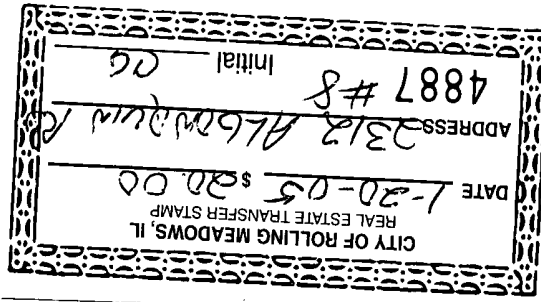 CITY OF ROLLING MEADOWS, IL
REAL ESTATE TRANSFER STAMP
DATE 1-20-05 $ 20.00
ADDRESS 2312 ALGONQUIN R
4887 #8 Initial